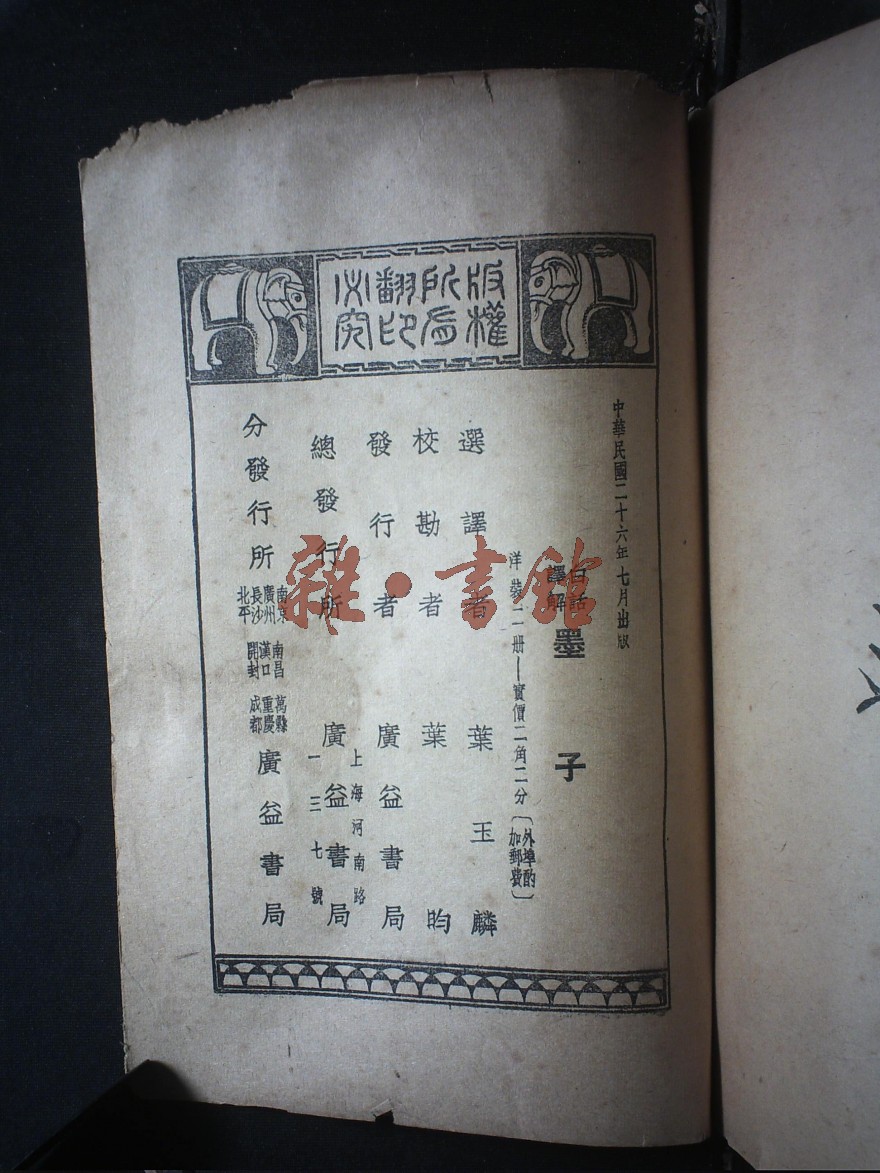 版權所有翻印必究
中華民國二十六年七月出版
白話譯解
墨子
洋裝二册—實價二角二分
〔外埠酌加郵費〕
選譯者 葉玉麟
校勘者 葉昀
發行者 廣益書局
上海河南路一三七號
總發行所 廣益書局
分發行所
南京 南昌 萬縣
廣州 漢口 重慶
長沙 開封 成都
北平
廣益書局
雜·書館